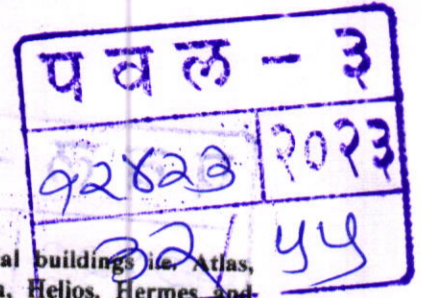 पवल - ३
१२४२३ २०२३
३२/ ५५
al buildings i.e. Atlas,
a, Helios, Hermes and